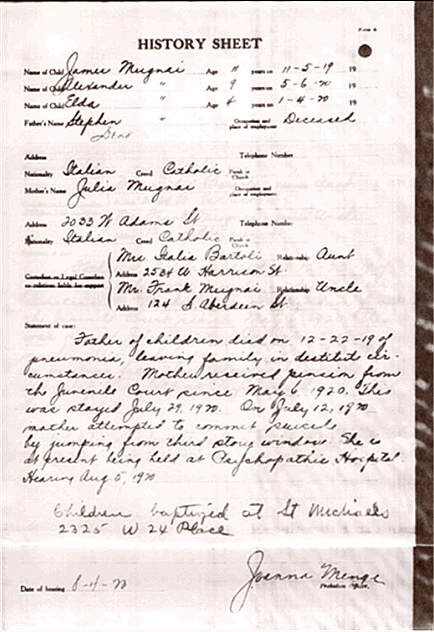 Form A
HISTORY SHEET
Name of Child James Mugnai Age 11 years on 11-5-19 19
Name of Child Alexander " Age 9 years on 5-6-20 19
Name of Child Elda " Age 4 years on 1-4-20 19
Father's Name Stephen " Occupation and place of employment Deceased
Dead
Address Telephone Number
Nationality Italian Creed Catholic Parish or Church
Mother's Name Julia Mugnai Occupation and place of employment
Address 2033 W Adams St Telephone Number
Nationality Italian Creed Catholic Parish or Church
Mrs Italia Bartoli Relationship Aunt
Custodian or Legal Guardian or relations liable for support
Address 2584 W Harrison St.
Mr. Frank Mugnai Relationship Uncle
Address 124 S Aberdeen St.
Statement of case:
Father of children died on 12-22-19 of
pneumonia, leaving family in destitute cir-
cumstances. Mother received pension from
the Juvenile Court since May 6, 1920. This
was stayed July 29, 1920. On July 12, 1920
mother attempted to commit suicide
by jumping from third story window. She is
at present being held at Psychopathic Hospital.
Hearing Aug 5, 1920
Children baptized at St Michaels
2325 W 24 Place
Date of hearing 8-4-20
Joanna Menge
Probation Officer.